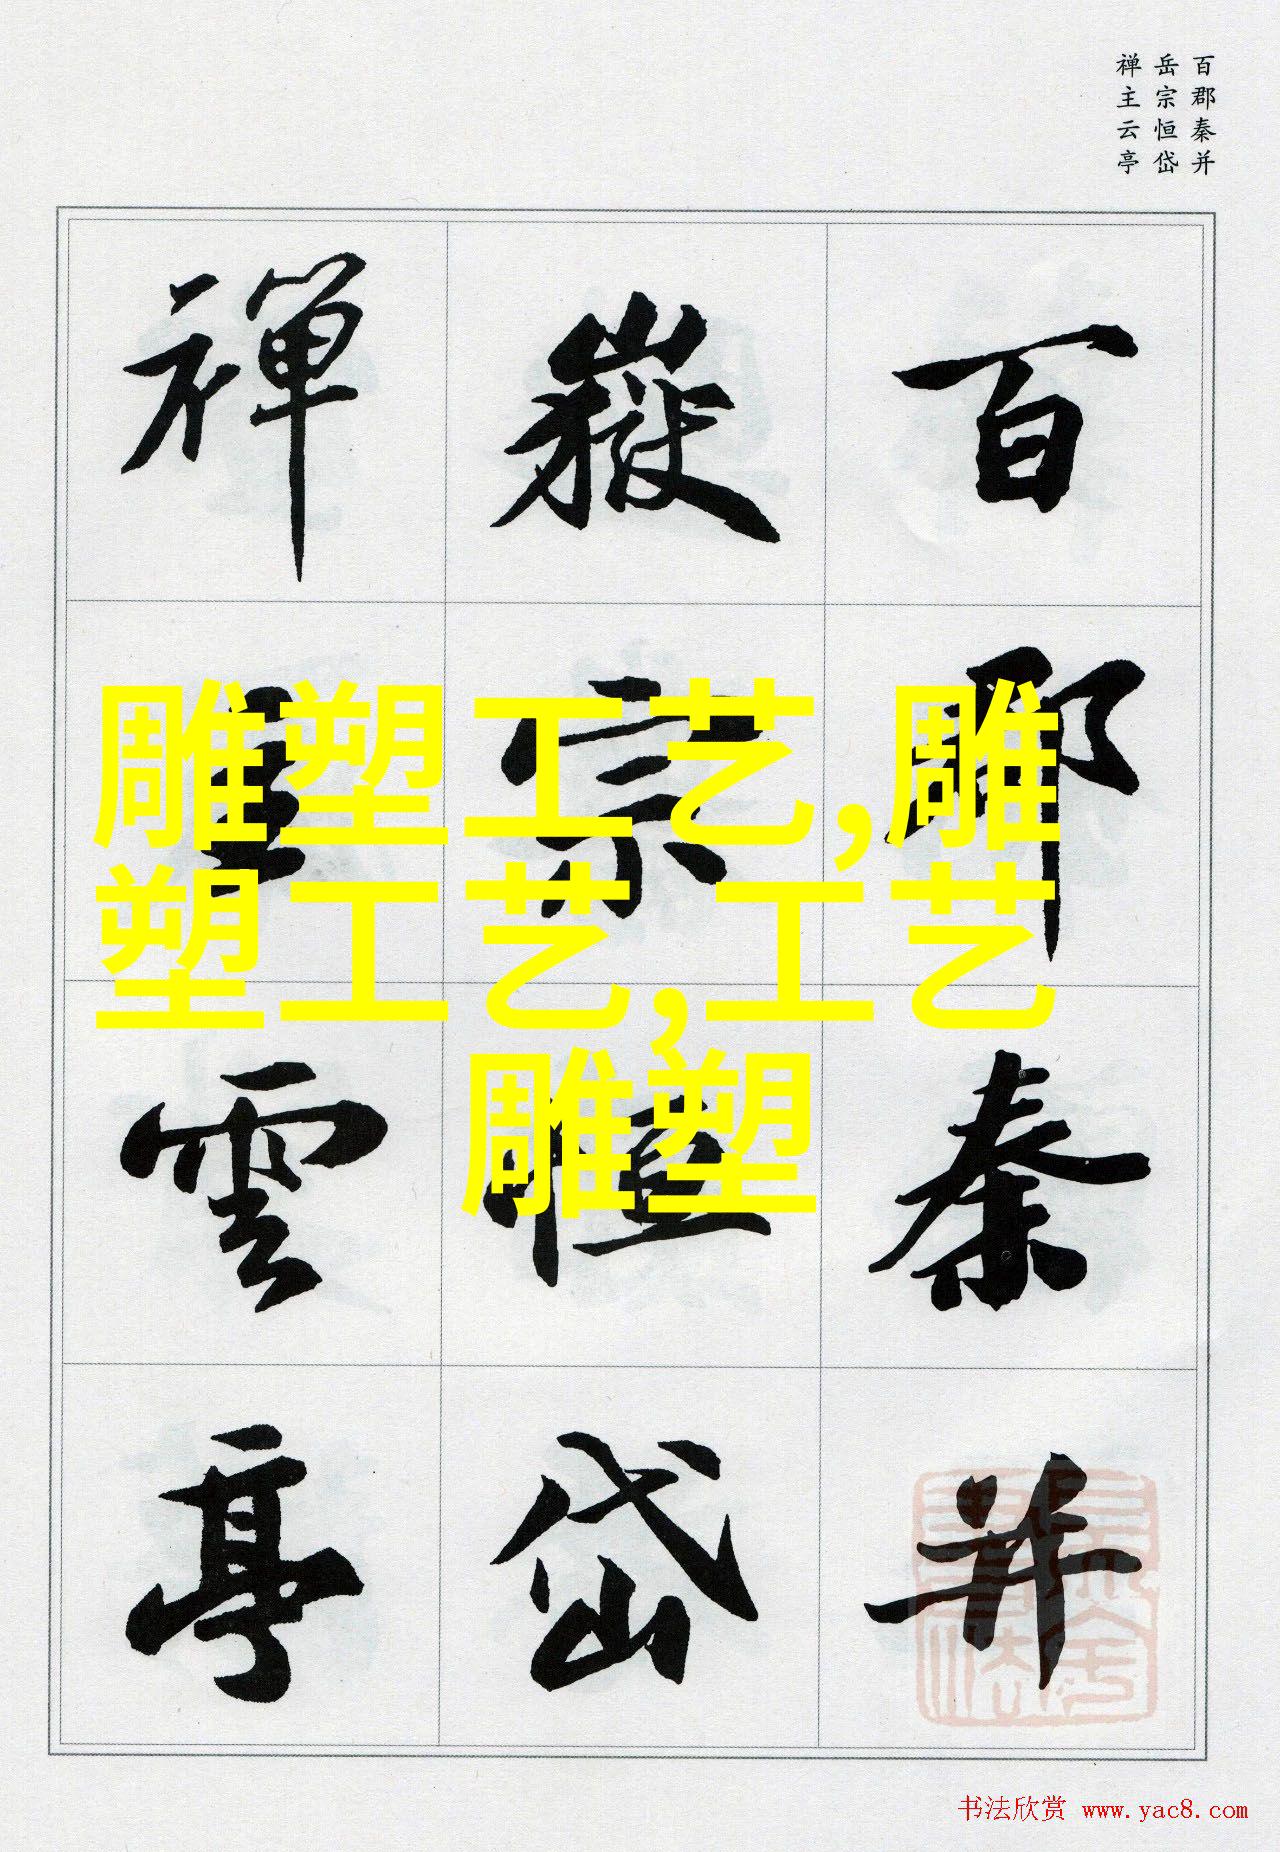 百郡秦并
岳宗恒岱
禅主云亭
百郡秦并
嶽宗恒岱
禪主雲亭
雕塑工艺,雕
塑工艺,工艺
雕塑
书法欣赏 www.yac8.com